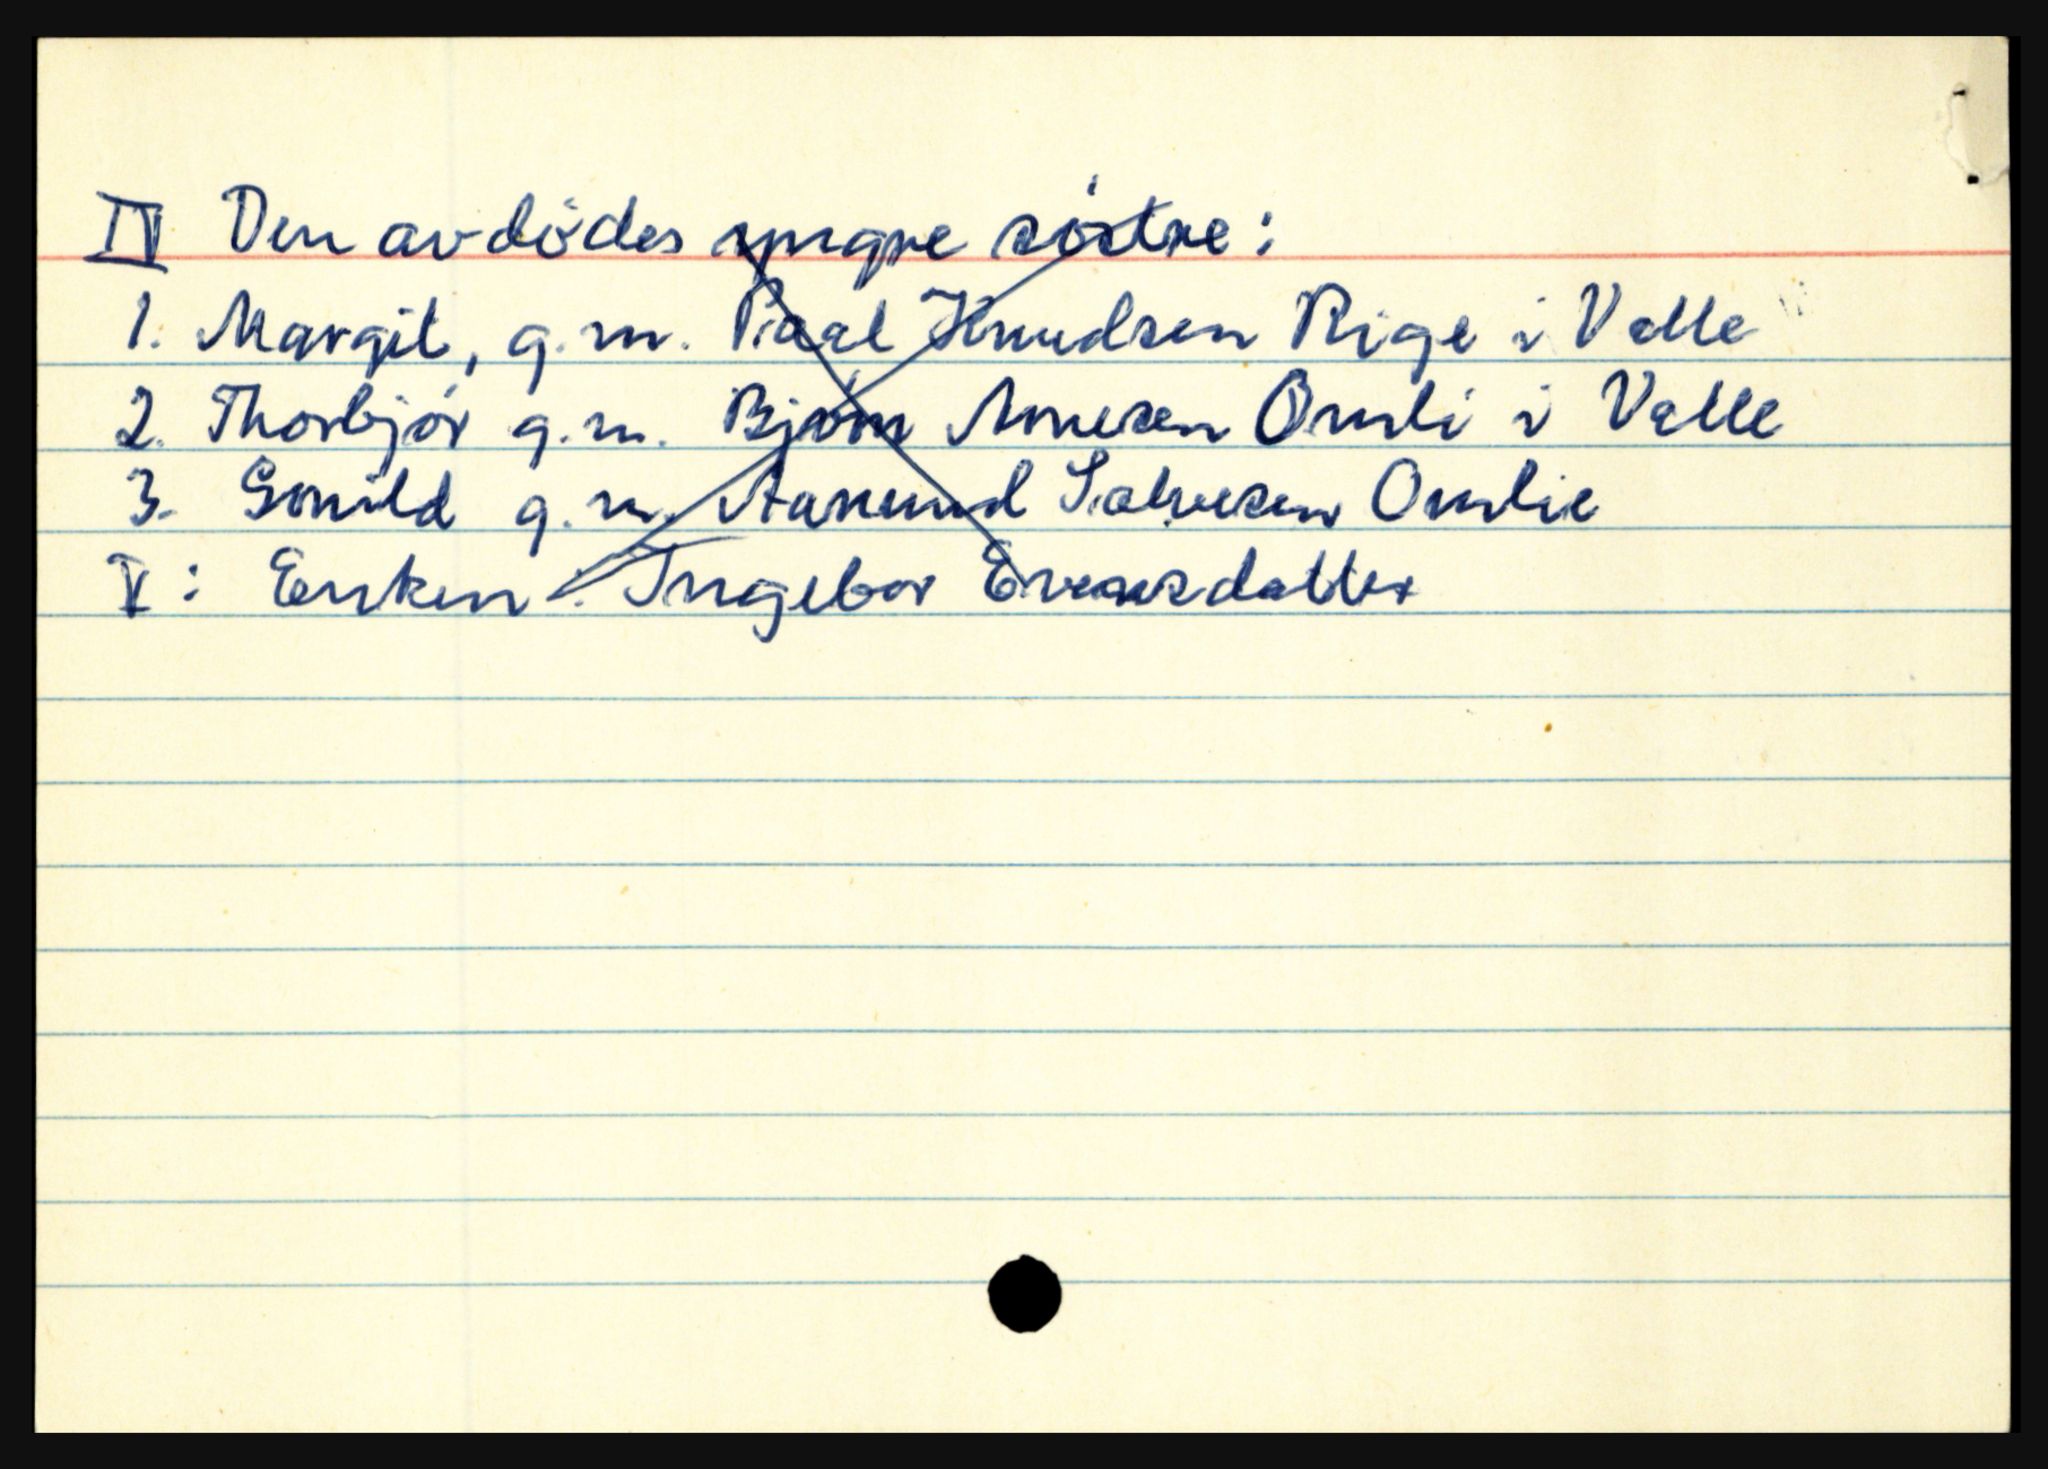 IV Den avdødes yngre søstre:
1. Margit, g.m. Paal Knudsen Rige i Valle
2. Thorbjør g.m. Bjørn Annesen Omli i Valle
3. Gonild g.m. Aanund Salvesen Omlie
V: Enken: Ingebor Evensdatter